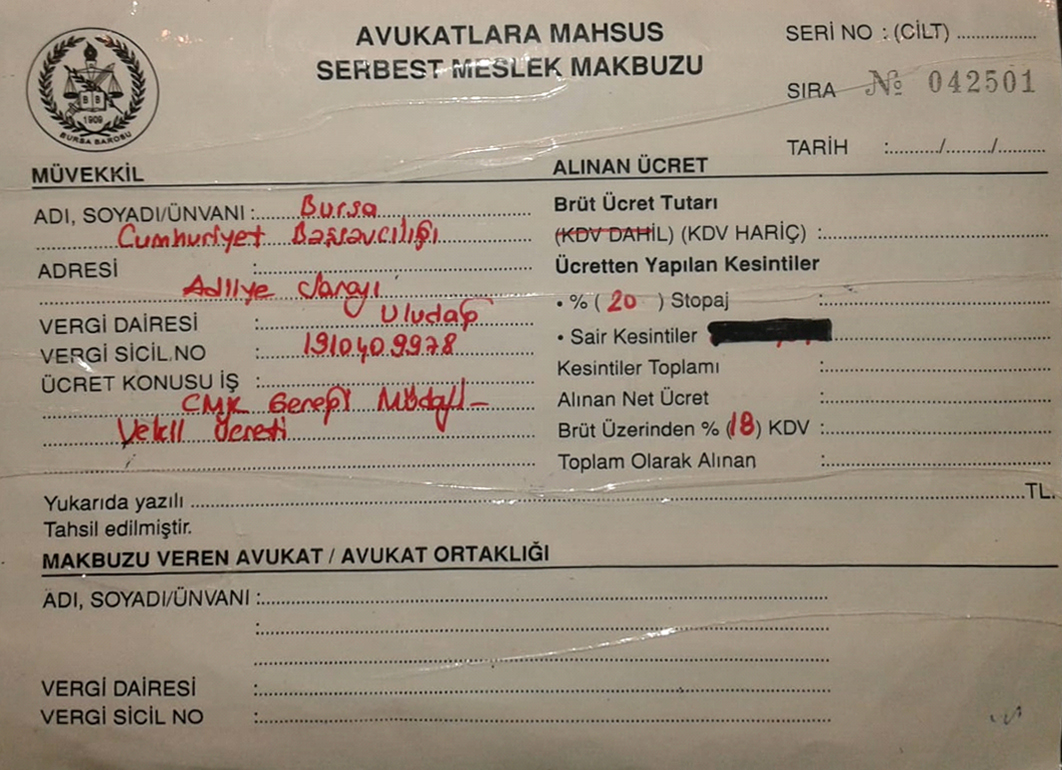 AVUKATLARA MAHSUS
SERBEST MESLEK MAKBUZU
1909
BURSA BAROSU
SERİ NO : (CİLT) ................
SIRA № 042501
TARİH :........../........./..........
MÜVEKKİL
ADI, SOYADI/ÜNVANI : Bursa
Cumhuriyet Başsavcılığı
ADRESİ :
Adliye Sarayı
VERGİ DAİRESİ : Uludağ
VERGİ SİCİL NO : 1910409978
ÜCRET KONUSU İŞ :
CMK Gereği Müdafi-
Vekil Ücreti
ALINAN ÜCRET
Brüt Ücret Tutarı
(KDV DAHİL) (KDV HARİÇ) :
Ücretten Yapılan Kesintiler
• % ( 20 ) Stopaj :
• Sair Kesintiler
Kesintiler Toplamı :
Alınan Net Ücret :
Brüt Üzerinden % (18) KDV :
Toplam Olarak Alınan :
Yukarıda yazılı ................TL.
Tahsil edilmiştir.
MAKBUZU VEREN AVUKAT / AVUKAT ORTAKLIĞI
ADI, SOYADI/ÜNVANI :
VERGİ DAİRESİ :
VERGİ SİCİL NO :